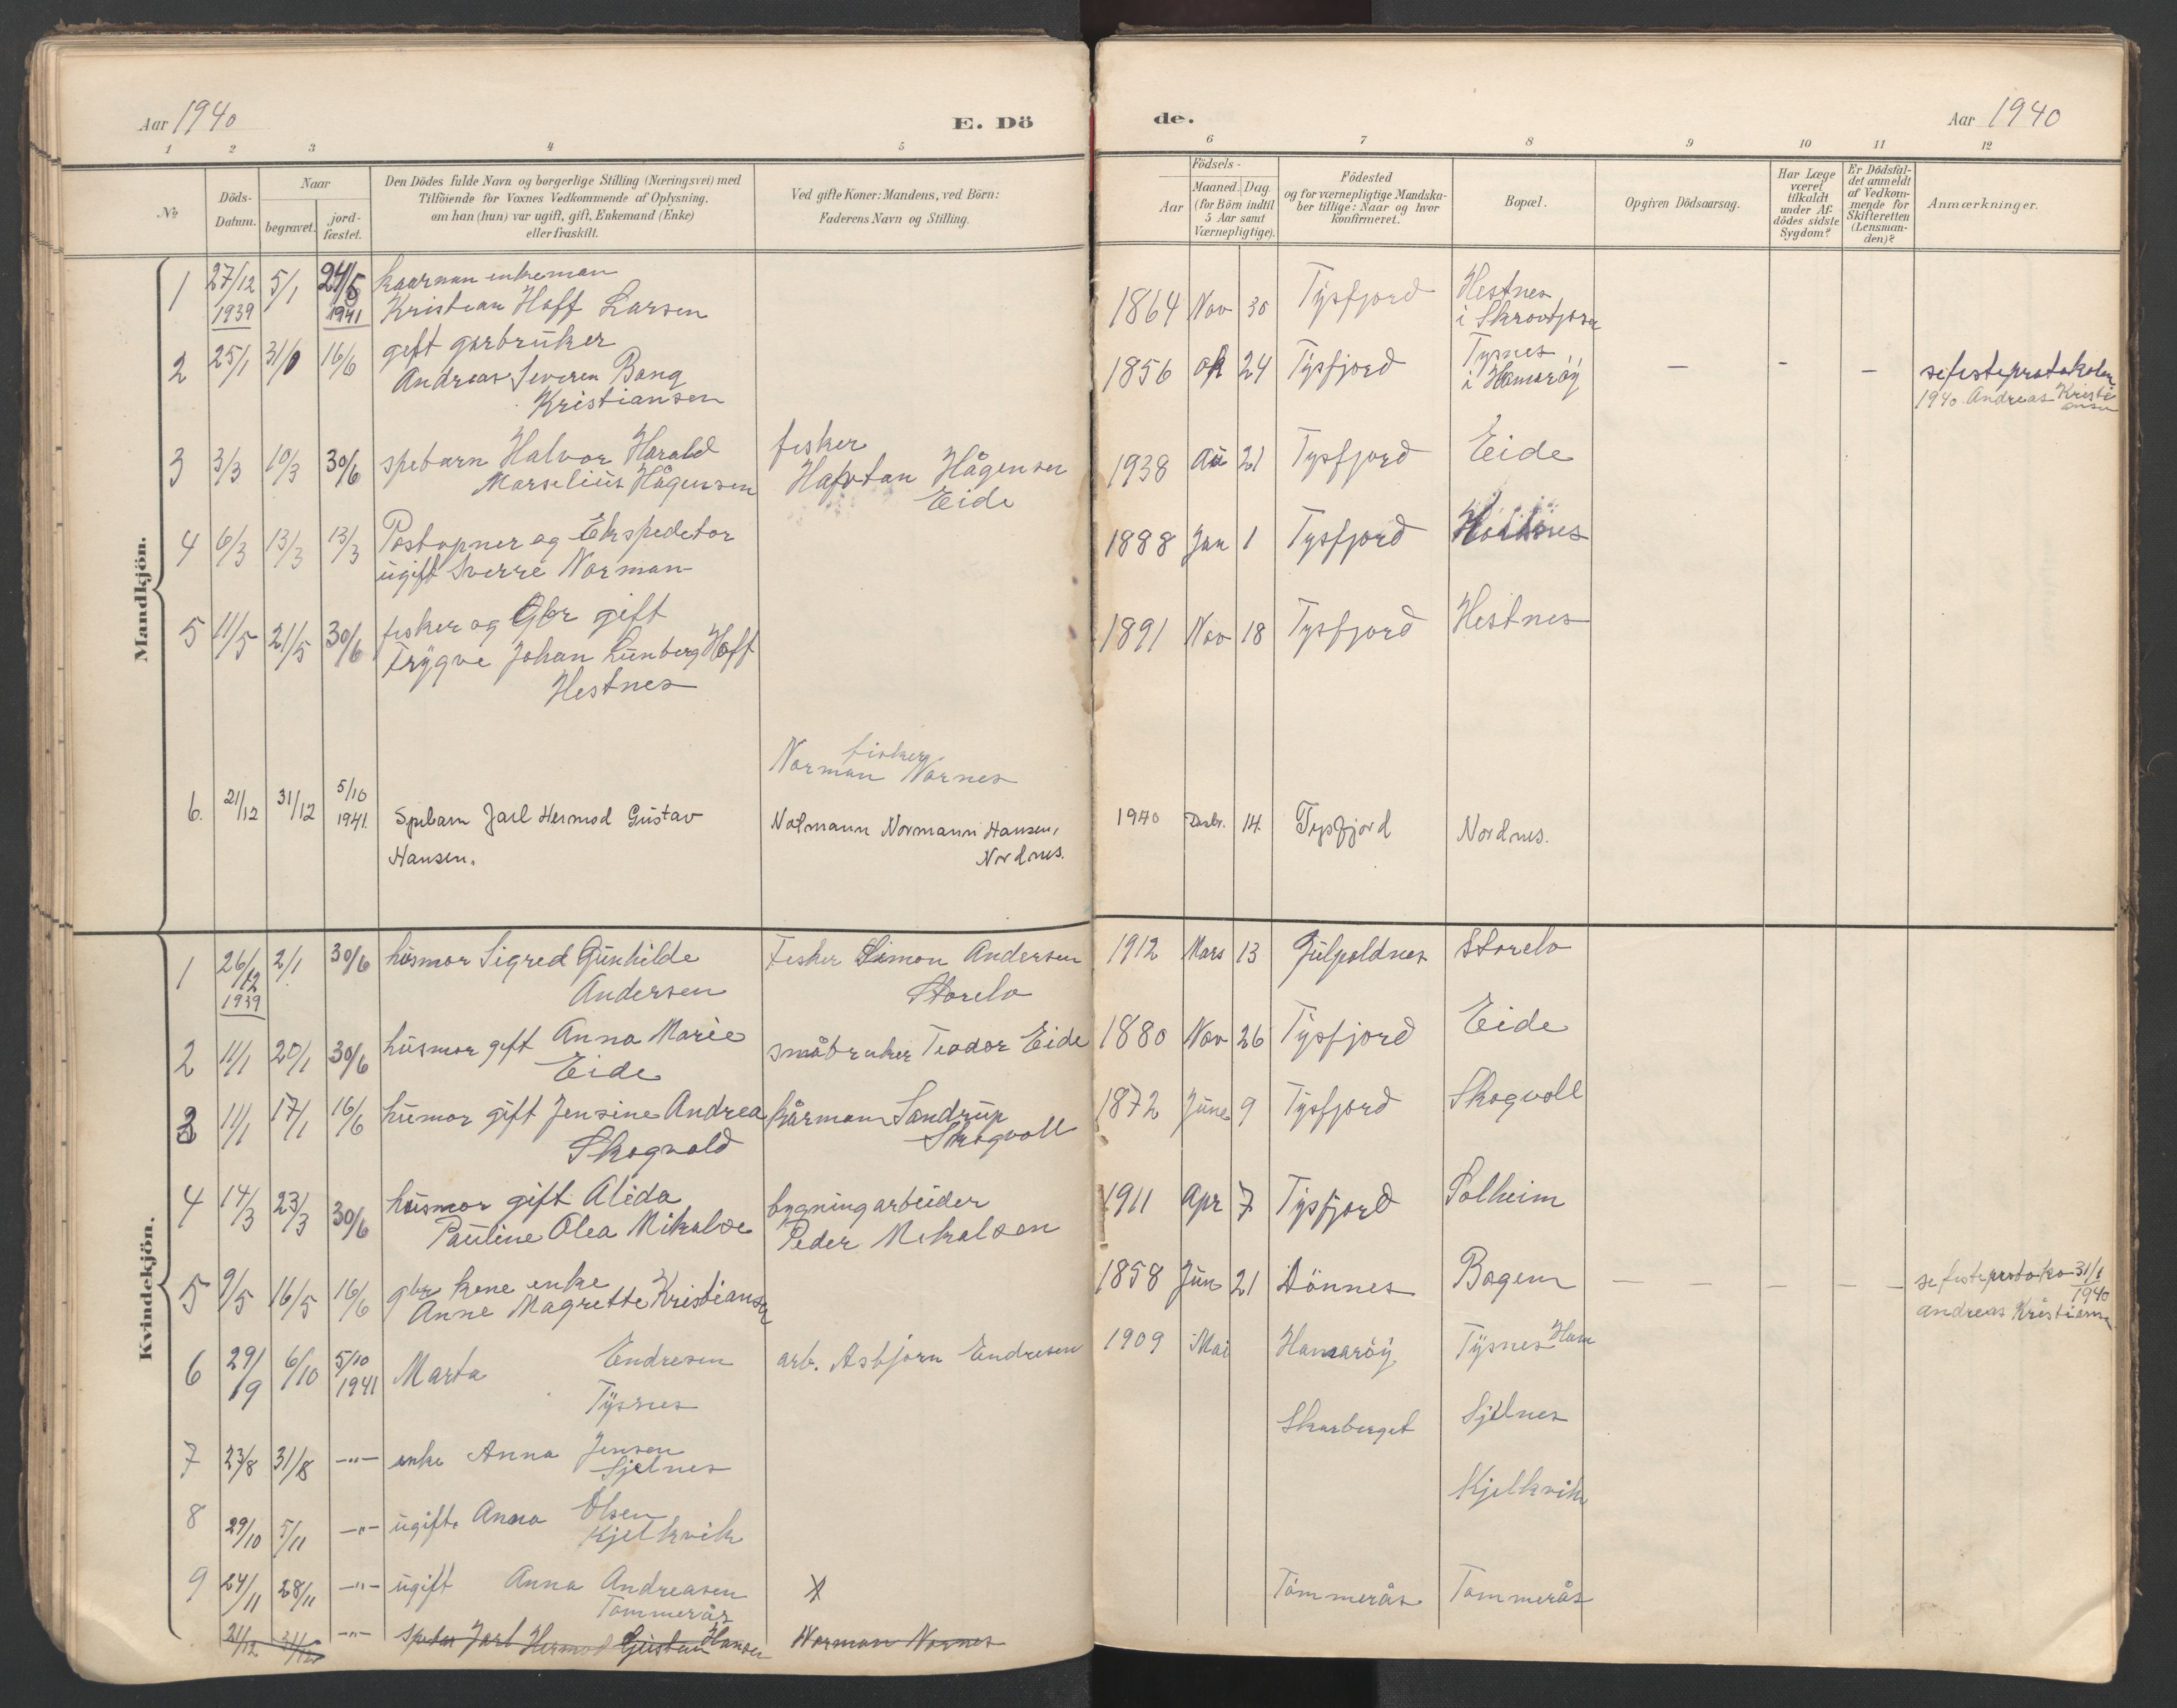 Aar 1940
E. Dö
de.
Aar 1940
1 2 3 4 5 6 7 8 9 10 11 12
No
Döds-
Datum.
Naar
begravet.
jord-
fæstet.
Den Dödes fulde Navn og borgerlige Stilling (Næringsvei) med
Tilföiende for Voxnes Vedkommende af Oplysning,
om han (hun) var ugift, gift, Enkemand (Enke)
eller fraskilt.
Ved gifte Koner: Mandens, ved Börn:
Faderens Navn og Stilling.
Aar
Födsels-
Maaned. Dag.
(for Börn indtil
5 Aar samt
Værnepligtige).
Födested
og for værnepligtige Mandska-
ber tillige: Naar og hvor
konfirmeret.
Bopæl.
Opgiven Dödsaarsag.
Har Læge
været
tilkaldt
under Af-
dödes sidste
Sygdom?
Er Dödsfal-
det anmeldt
af Vedkom-
mende for
Skifteretten
(Lensman-
den)?
Anmærkninger.
Mandkjön.
1 27/12 1939 5/1 24/5 1941 kaarman enkeman
Kristian Hoff Larsen
1864 Nov 30 Tysfjord Hestnes
i Skrovkjosen
2 25/1 31/1 16/6 gift garbruker
Andreas Severen Bang
Kristiansen
1856 ok 24 Tysfjord Tysnes
i Hamarøy
— - — se festeprotokolen
1940 Andreas Kristi
ansen
3 3/3 10/3 30/6 spebarn Halvor Harald
Marselius Hågensen
fisker
Hartvan Hågensen
Eide
1938 Au 21 Tysfjord Eide
4 6/3 13/3 13/3 Postopner og Ekspeditor
ugift Sverre Norman
1888 Jan 1 Tysfjord
5 11/5 21/5 30/6 fisker og Gbr gift
Trygve Johan Lunberg Hoff
Hestnes
1891 Nov 18 Tysfjord Hestnes
fisker
Norman Nornes
6. 21/12 31/12 5/10 1941. Spebarn Jarl Hermod Gustav
Hansen.
Notmann Normann Hansen,
Nordnes.
1940 Desbr. 14. Tysfjord Nordnes.
Kvindekjön.
1 26/12 1939 2/1 30/6 husmor Sigred Gunhilde
Andersen
Fisker Simon Andersen
Storelv
1912 Mars 13 Gulpoldnes Storelv
2 11/1 20/1 30/6 husmor gift Anna Marie
Eide
småbruker Teodor Eide
1880 Nov 26 Tysfjord Eide
3 11/1 17/1 16/6 husmor gift Jensine Andrea
Skogvold
kårman Sandrup
Skogvoll
1872 June 9 Tysfjord Skogvoll
4 14/3 23/3 30/6 husmor gift Alida
Pauline Olea Mikalse
bygningarbeider
Peder Mikalsen
1911 Apr 7 Tysfjord Solheim
5 9/5 16/5 16/6 gbr kone enke
Anne Magrette Kristiansen
1858 Jun 21 Dönnes Bogen
— — — — — se festeprotoko 31/1
1940
andreas Kristiansen
6 29/9 6/10 5/10 1941 Marta Endresen
Tysnes
arb. Asbjørn Endresen
1909 Mai Hamarøy Tysnes Ham
7 23/8 31/8 —"— enke Anna Jensen
Sjelnes
Skarberget Sjelnes
8 29/10 5/11 —"— ugift. Anna Olsen
Kjelkvik
Kjelkvik
9 24/11 28/11 —"— ugift Anna Andreasen
Tommerås
X
Tommerås Tommerås
21/12 31/12 —"— speba Jarl Hermod Gustav Hansen Norman Nornes